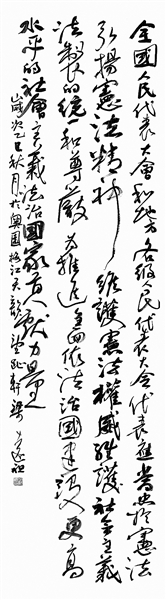 全國人民代表大會和地方各級人民代表大會代表應當忠於憲法
弘揚憲法精神維護憲法權威維護社會主義
法制的統一和尊嚴為推進全面依法治國建設更高
水平的社會主義法治國家貢獻力量
歲次乙巳秋月於興國